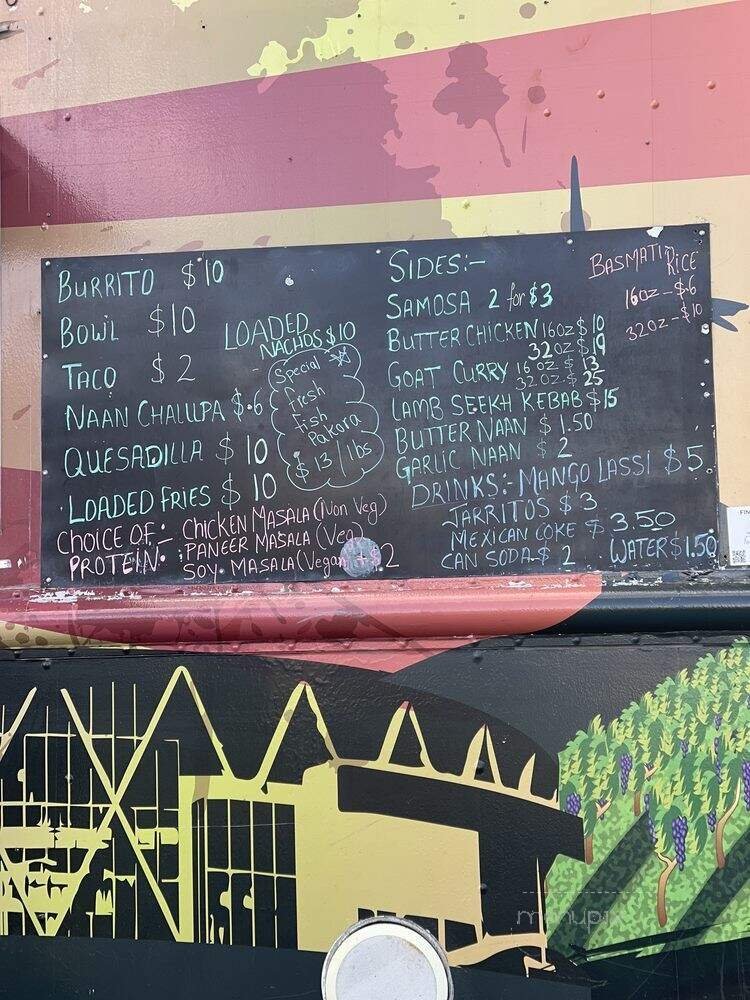 BURRITO $10
BOWL $10
TACO $2
NAAN CHALUPA $.6
QUESADILLA $10
LOADED FRIES $10
LOADED
NACHOS $10
Special
fresh
Fish
Pakara
$13/lbs
CHOICE OF:- CHICKEN MASALA (Non Veg)
PROTEIN: PANEER MASALA (Veg)
SOY. MASALA (Vegan) + $2
SIDES:-
SAMOSA 2 for $3
BUTTER CHICKEN 16OZ $10
32OZ $19
GOAT CURRY 16 OZ $13
32 OZ. $25
LAMB SEEKH KEBAB $15
BUTTER NAAN $1.50
GARLIC NAAN $2
BASMATI
RICE
16OZ - $.6
32OZ - $10
DRINKS:- MANGO LASSI $5
JARRITOS $3
MEXICAN COKE $3.50
CAN SODA-$ 2 WATER $1.50
menupix